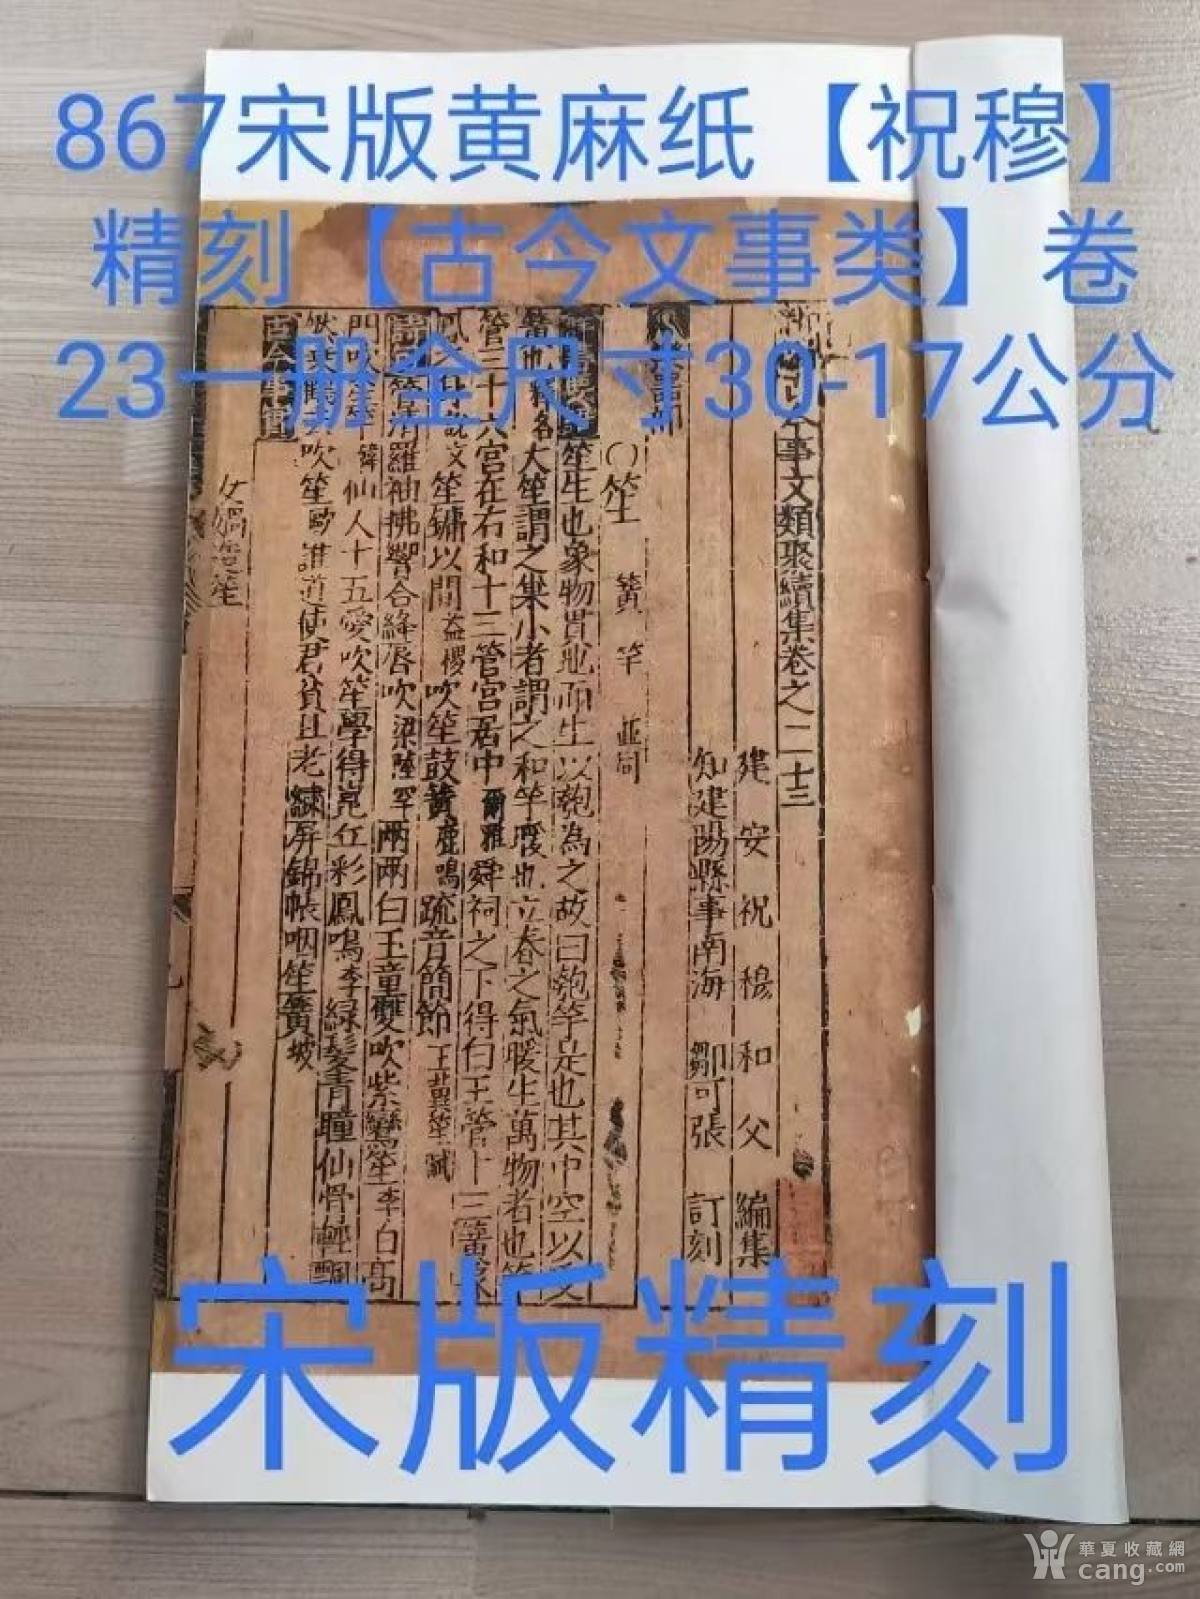 867宋版黄麻纸【祝穆】
精刻【古今文事类】卷
23一册全尺寸30-17公分
今事文類聚續集卷之二十三
建安祝穆和父 編集
知建陽縣事南海 鄒可張 訂刻
○笙 簧竽並同
笙生也象物貫地而生以匏為之故曰匏竽是也其中空以受
大笙謂之巢小者謂之和竽暖也立春之氣暖生萬物者也
管三十六宮在右和十三管宮居中爾雅舜祠之下得白玉管十三簧象
笙鏞以間益稷吹笙鼓簧鹿鳴疏音簡節王
羅袖拂響合絳唇吹梁陸罕兩兩白玉童雙吹紫鸞笙李白高
仙人十五愛吹笙學得崑丘彩鳳鳴李綠髮青瞳仙骨輕飄
吹笙歐誰道使君貧且老繡屏錦帳咽笙簧坡
古今事實
女媧
宋版精刻
華夏收藏網
cang.com